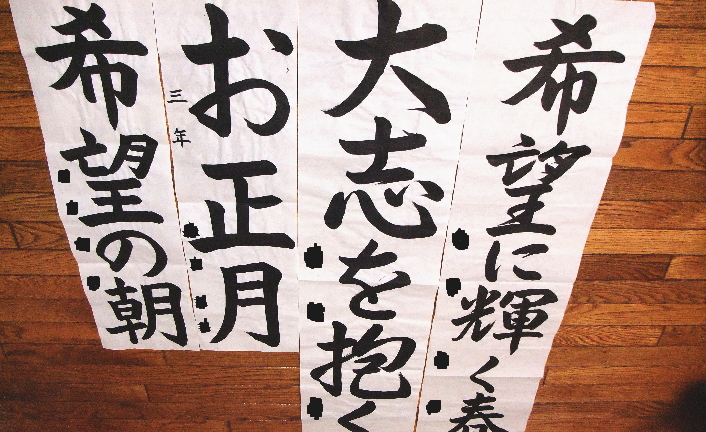 希望に輝く春
大志を抱く
お正月
三年
希望の朝